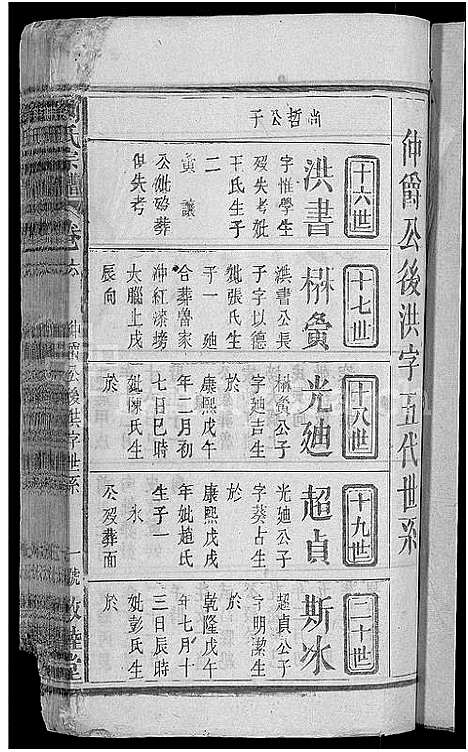 仲簡公後洪字五代世系
尚哲公子
十六世
洪書
字惟學生
歿失考妣
王氏生子
二
寅讓
公妣歿葬
俱失考
十七世
楙賞
洪書公長
子字以德
妣張氏生
子一 廸
合葬魯家
冲紅漆塝
大腦上戌
辰向
十八世
光廸
楙賞公子
字廸吉生
於
康熙戊午
年二月初
七日巳時
妣陳氏生
於
十九世
超貞
光廸公子
字葵占生
於
康熙戊戌
年妣趙氏
生子一
永
公歿葬面
二十世
斯冰
超貞公子
字明潔生
於
乾隆戊午
年七月十
三日辰時
妣彭氏生
於
氏宗譜
卷六
仲簡公後洪字世系
一號
敦睦堂